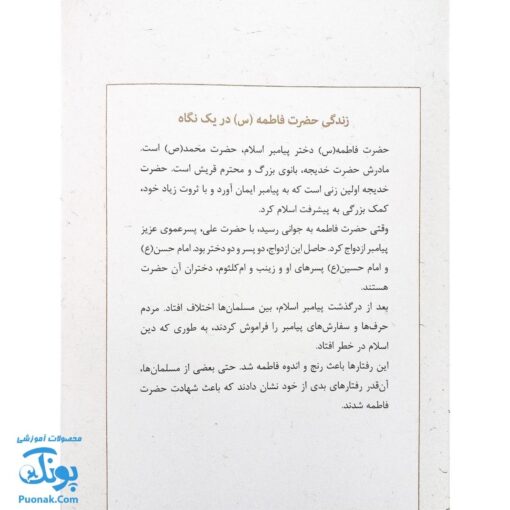 زندگی حضرت فاطمه (س) در یک نگاه
حضرت فاطمه(س) دختر پیامبر اسلام، حضرت محمد(ص) است.
مادرش حضرت خدیجه، بانوی بزرگ و محترم قریش است. حضرت
خدیجه اولین زنی است که به پیامبر ایمان آورد و با ثروت زیاد خود،
کمک بزرگی به پیشرفت اسلام کرد.
وقتی حضرت فاطمه به جوانی رسید، با حضرت علی، پسرعموی عزیز
پیامبر ازدواج کرد. حاصل این ازدواج، دو پسر و دو دختر بود. امام حسن(ع)
و امام حسین(ع) پسرهای او و زینب و ام‌کلثوم، دختران آن حضرت
هستند.
بعد از درگذشت پیامبر اسلام، بین مسلمان‌ها اختلاف افتاد. مردم
حرف‌ها و سفارش‌های پیامبر را فراموش کردند، به طوری که دین
اسلام در خطر افتاد.
این رفتارها باعث رنج و اندوه فاطمه شد. حتی بعضی از مسلمان‌ها،
آن‌قدر رفتارهای بدی از خود نشان دادند که باعث شهادت حضرت
فاطمه شدند.
محصولات آموزشی
پونک
Puonak.Com